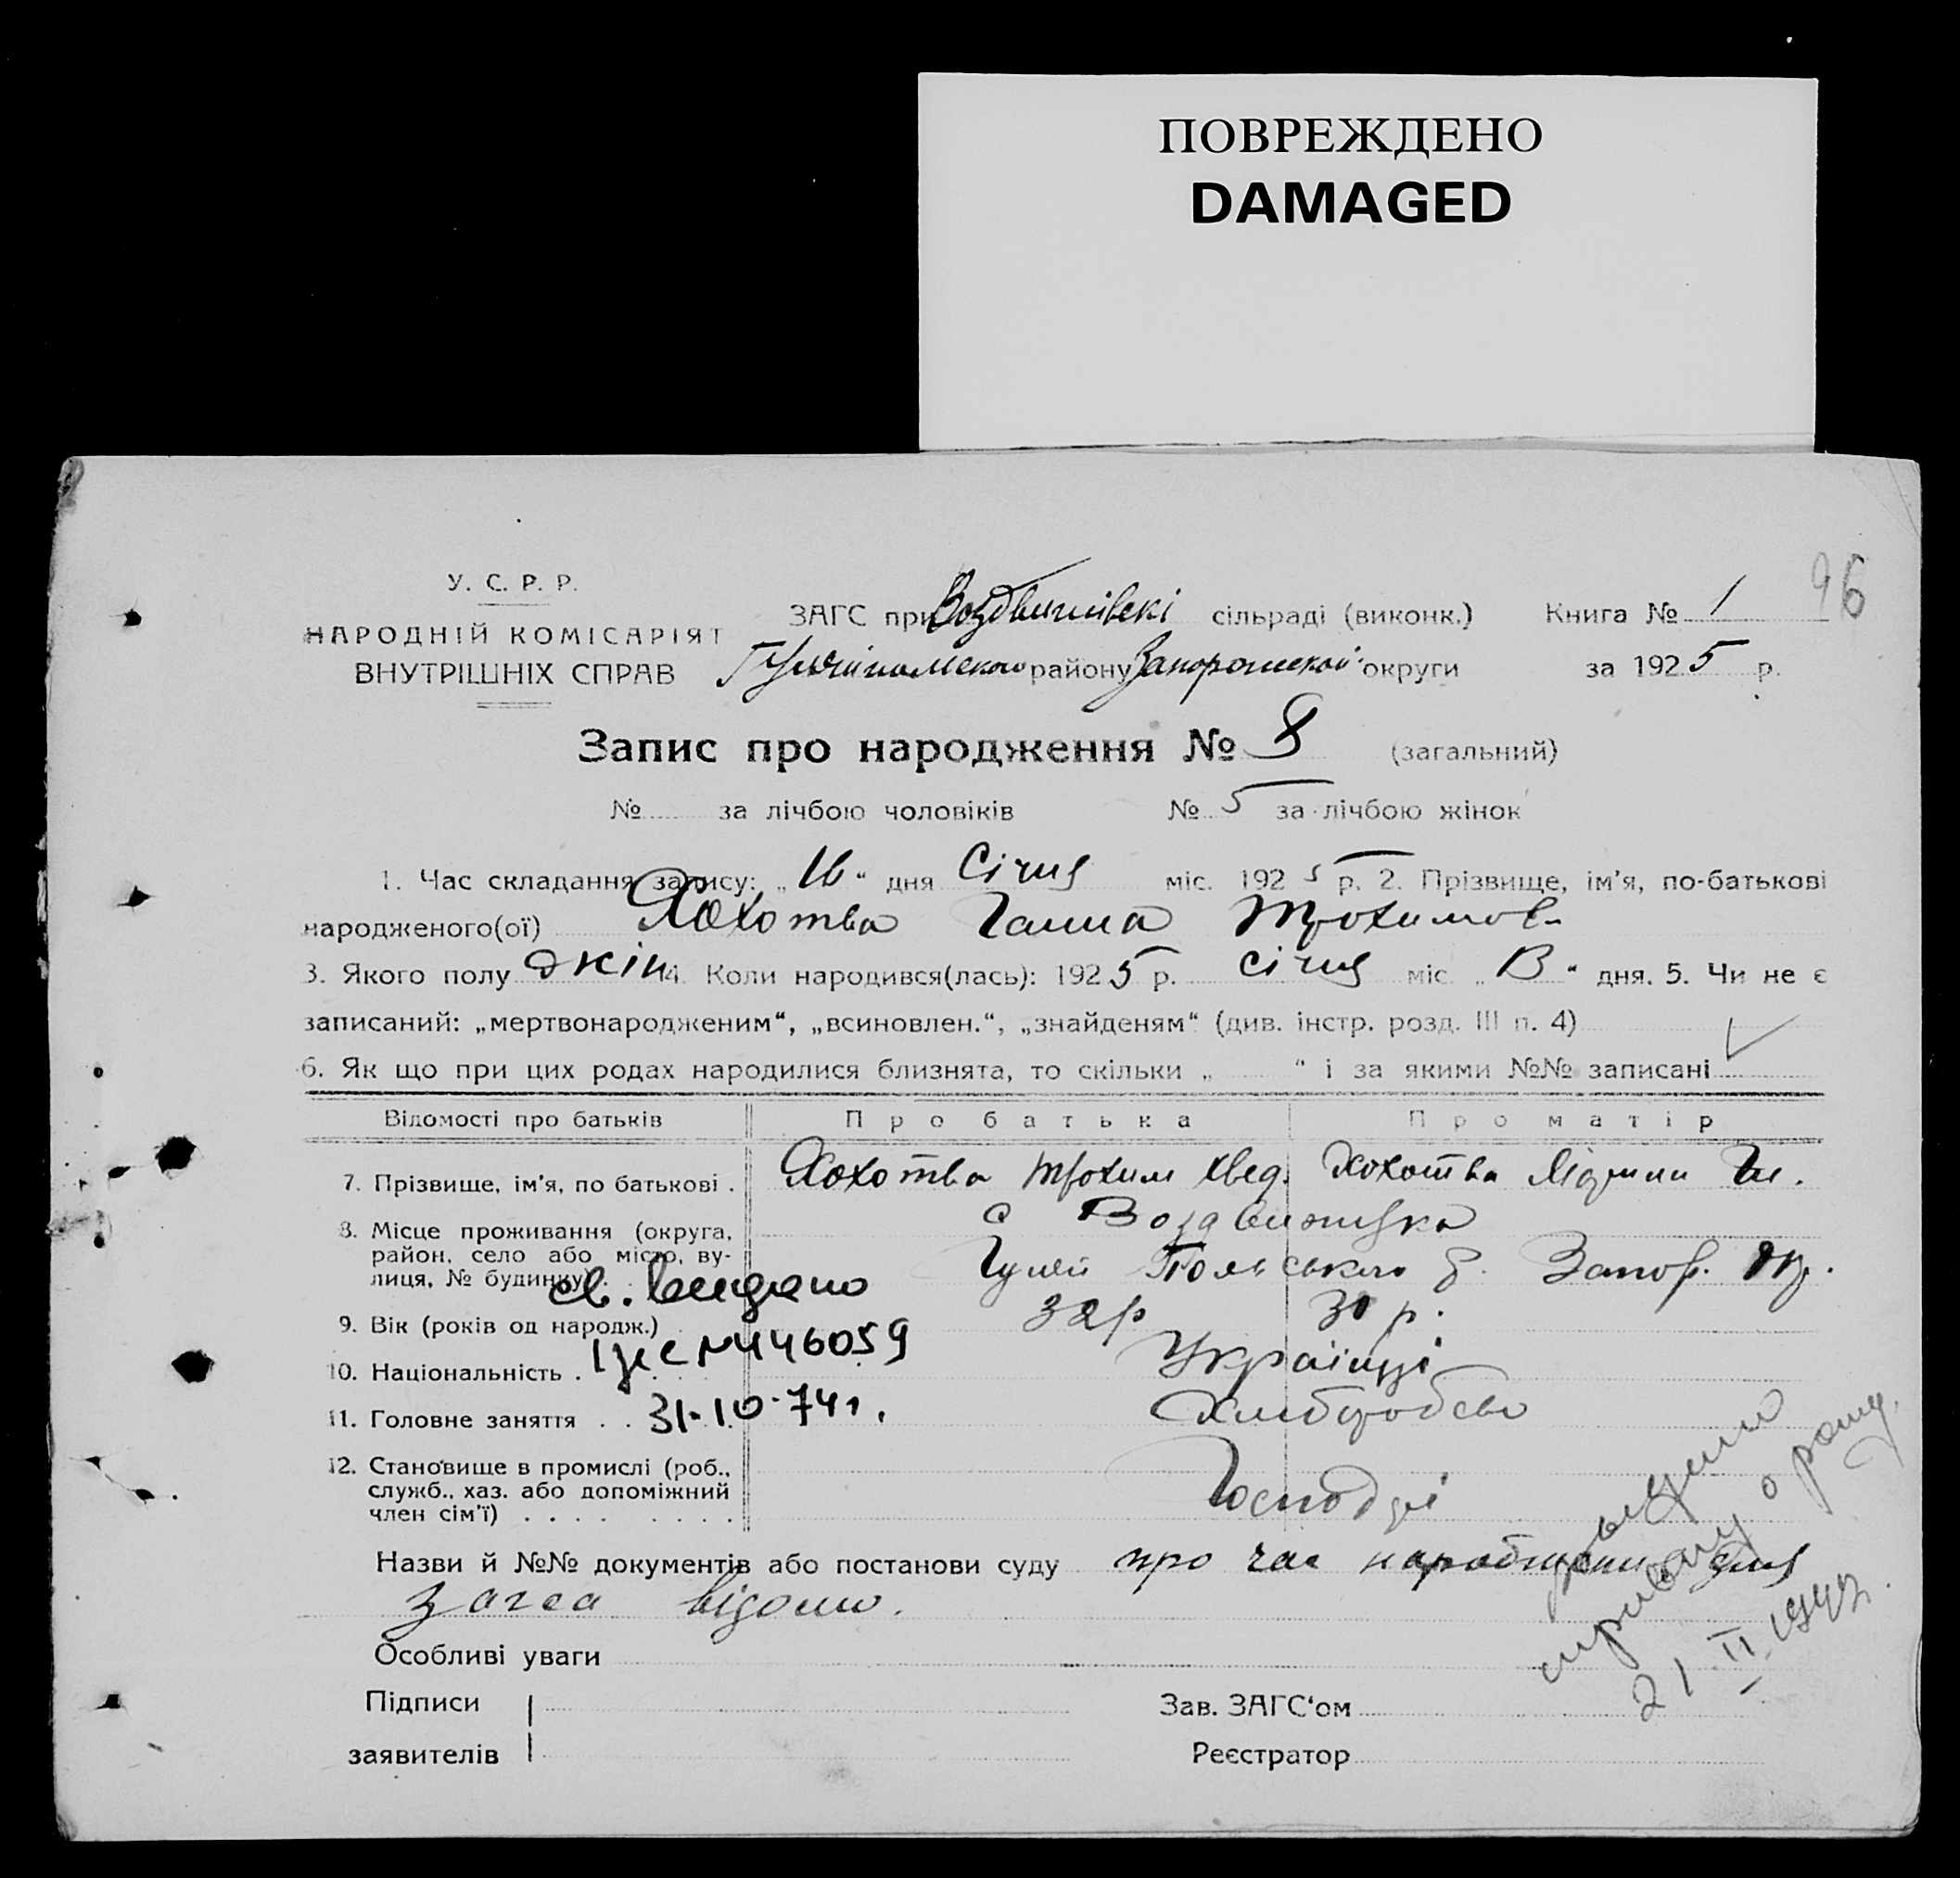 ПОВРЕЖДЕНО
DAMAGED
У. С. Р. Р.
НАРОДНІЙ КОМІСАРІЯТ
ВНУТРІШНІХ СПРАВ
ЗАГС при Воздвижівскі сільраді (виконк.) Книга № 1 96
району Запорожской округи за 1925 р.
Запис про народження № 8 (загальний)
№ за лічбою чоловіків № 5 за лічбою жінок
1. Час складання запису: „16“ дня Січня міс. 1925 р. 2. Прізвище, ім'я, по-батькові
народженого(ої) Хохотва Ганна Трохимов.
3. Якого полу жін 4. Коли народився(лась): 1925 р. січня міс. „13“ дня. 5. Чи не є
записаний: „мертвонародженим“, „всиновлен.“, „знайденям“ (див. інстр. розд. III п. 4)
6. Як що при цих родах народилися близнята, то скільки „ “ і за якими №№ записані
Відомості про батьків Про батька Про матір
7. Прізвище, ім'я, по батькові . Хохотва Трохим Хвед. Хохотва
8. Місце проживання (округа, с Воздвижувка
район, село або місто, ву-
лиця, № будинку) . Гуляй Польського р. Запор. окр.
св. видано
9. Вік (років од народж.) . 32 р 30 р.
№ 446059
10. Національність . Українці
11. Головне заняття . . Хлібороби
31.10.74г.
12. Становище в промислі (роб., Господарі
служб., хаз. або допоміжний
член сім'ї) . . . . . . . .
Назви й №№ документів або постанови суду про час народження для
загса відомо.
выдано
справку о рожд.
21 II 1947.
Особливі уваги
Підписи Зав. ЗАГС'ом
заявителів Реєстратор